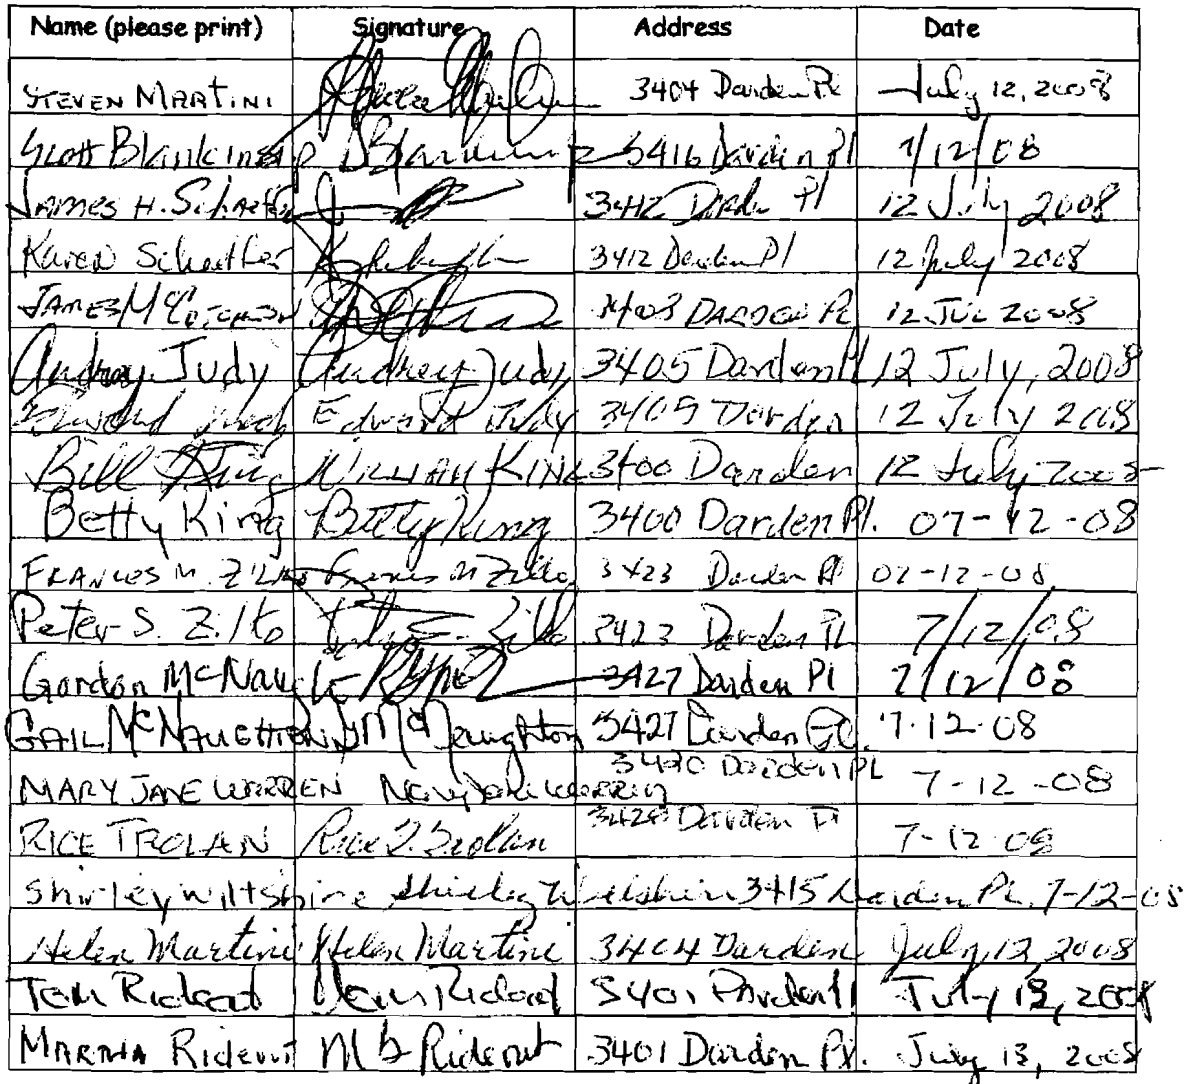 Name (please print) Signature Address Date
STEVEN MARTINI 3404 Darden Pl July 12, 2008
Scott Blankinship 3416 Darden Pl 7/12/08
JAMES H. Schaeffer 3412 Darden Pl 12 July 2008
Karen Schaeffer 3412 Darden Pl 12 July 2008
JAMES 3403 DARDEN PL 12 JUL 2008
Audrey Judy Audrey Judy 3405 Darden Pl 12 July, 2008
Edward Judy Edward Judy 3405 Darden 12 July 2008
Bill King WILLIAM KING 3400 Darden 12 July 2008
Betty King Betty King 3400 Darden Pl. 07-12-08
FRANCES M. Frances M 3423 Darden Pl 07-12-08
Peter S. Zilko 3423 Darden Pl 7/12/08
Gordon McNaughton 3427 Darden Pl 7/12/08
GAIL McNAUGHTON McNaughton 3427 Darden Pl. 7-12-08
MARY JANE WARREN Mary Jane Warren 3420 Darden PL 7-12-08
RICE TROLAN Rice Trolan 3420 Darden Pl 7-12-08
Shirley Wiltshire Shirley Wiltshire 3415 Darden Pl. 7-12-08
Helen Martini Helen Martini 3404 Darden July, 12, 2008
Tom Rideout Tom Rideout 3401 Darden Pl July 13, 2008
MARTHA Rideout M B Rideout 3401 Darden Pl. July 13, 2008